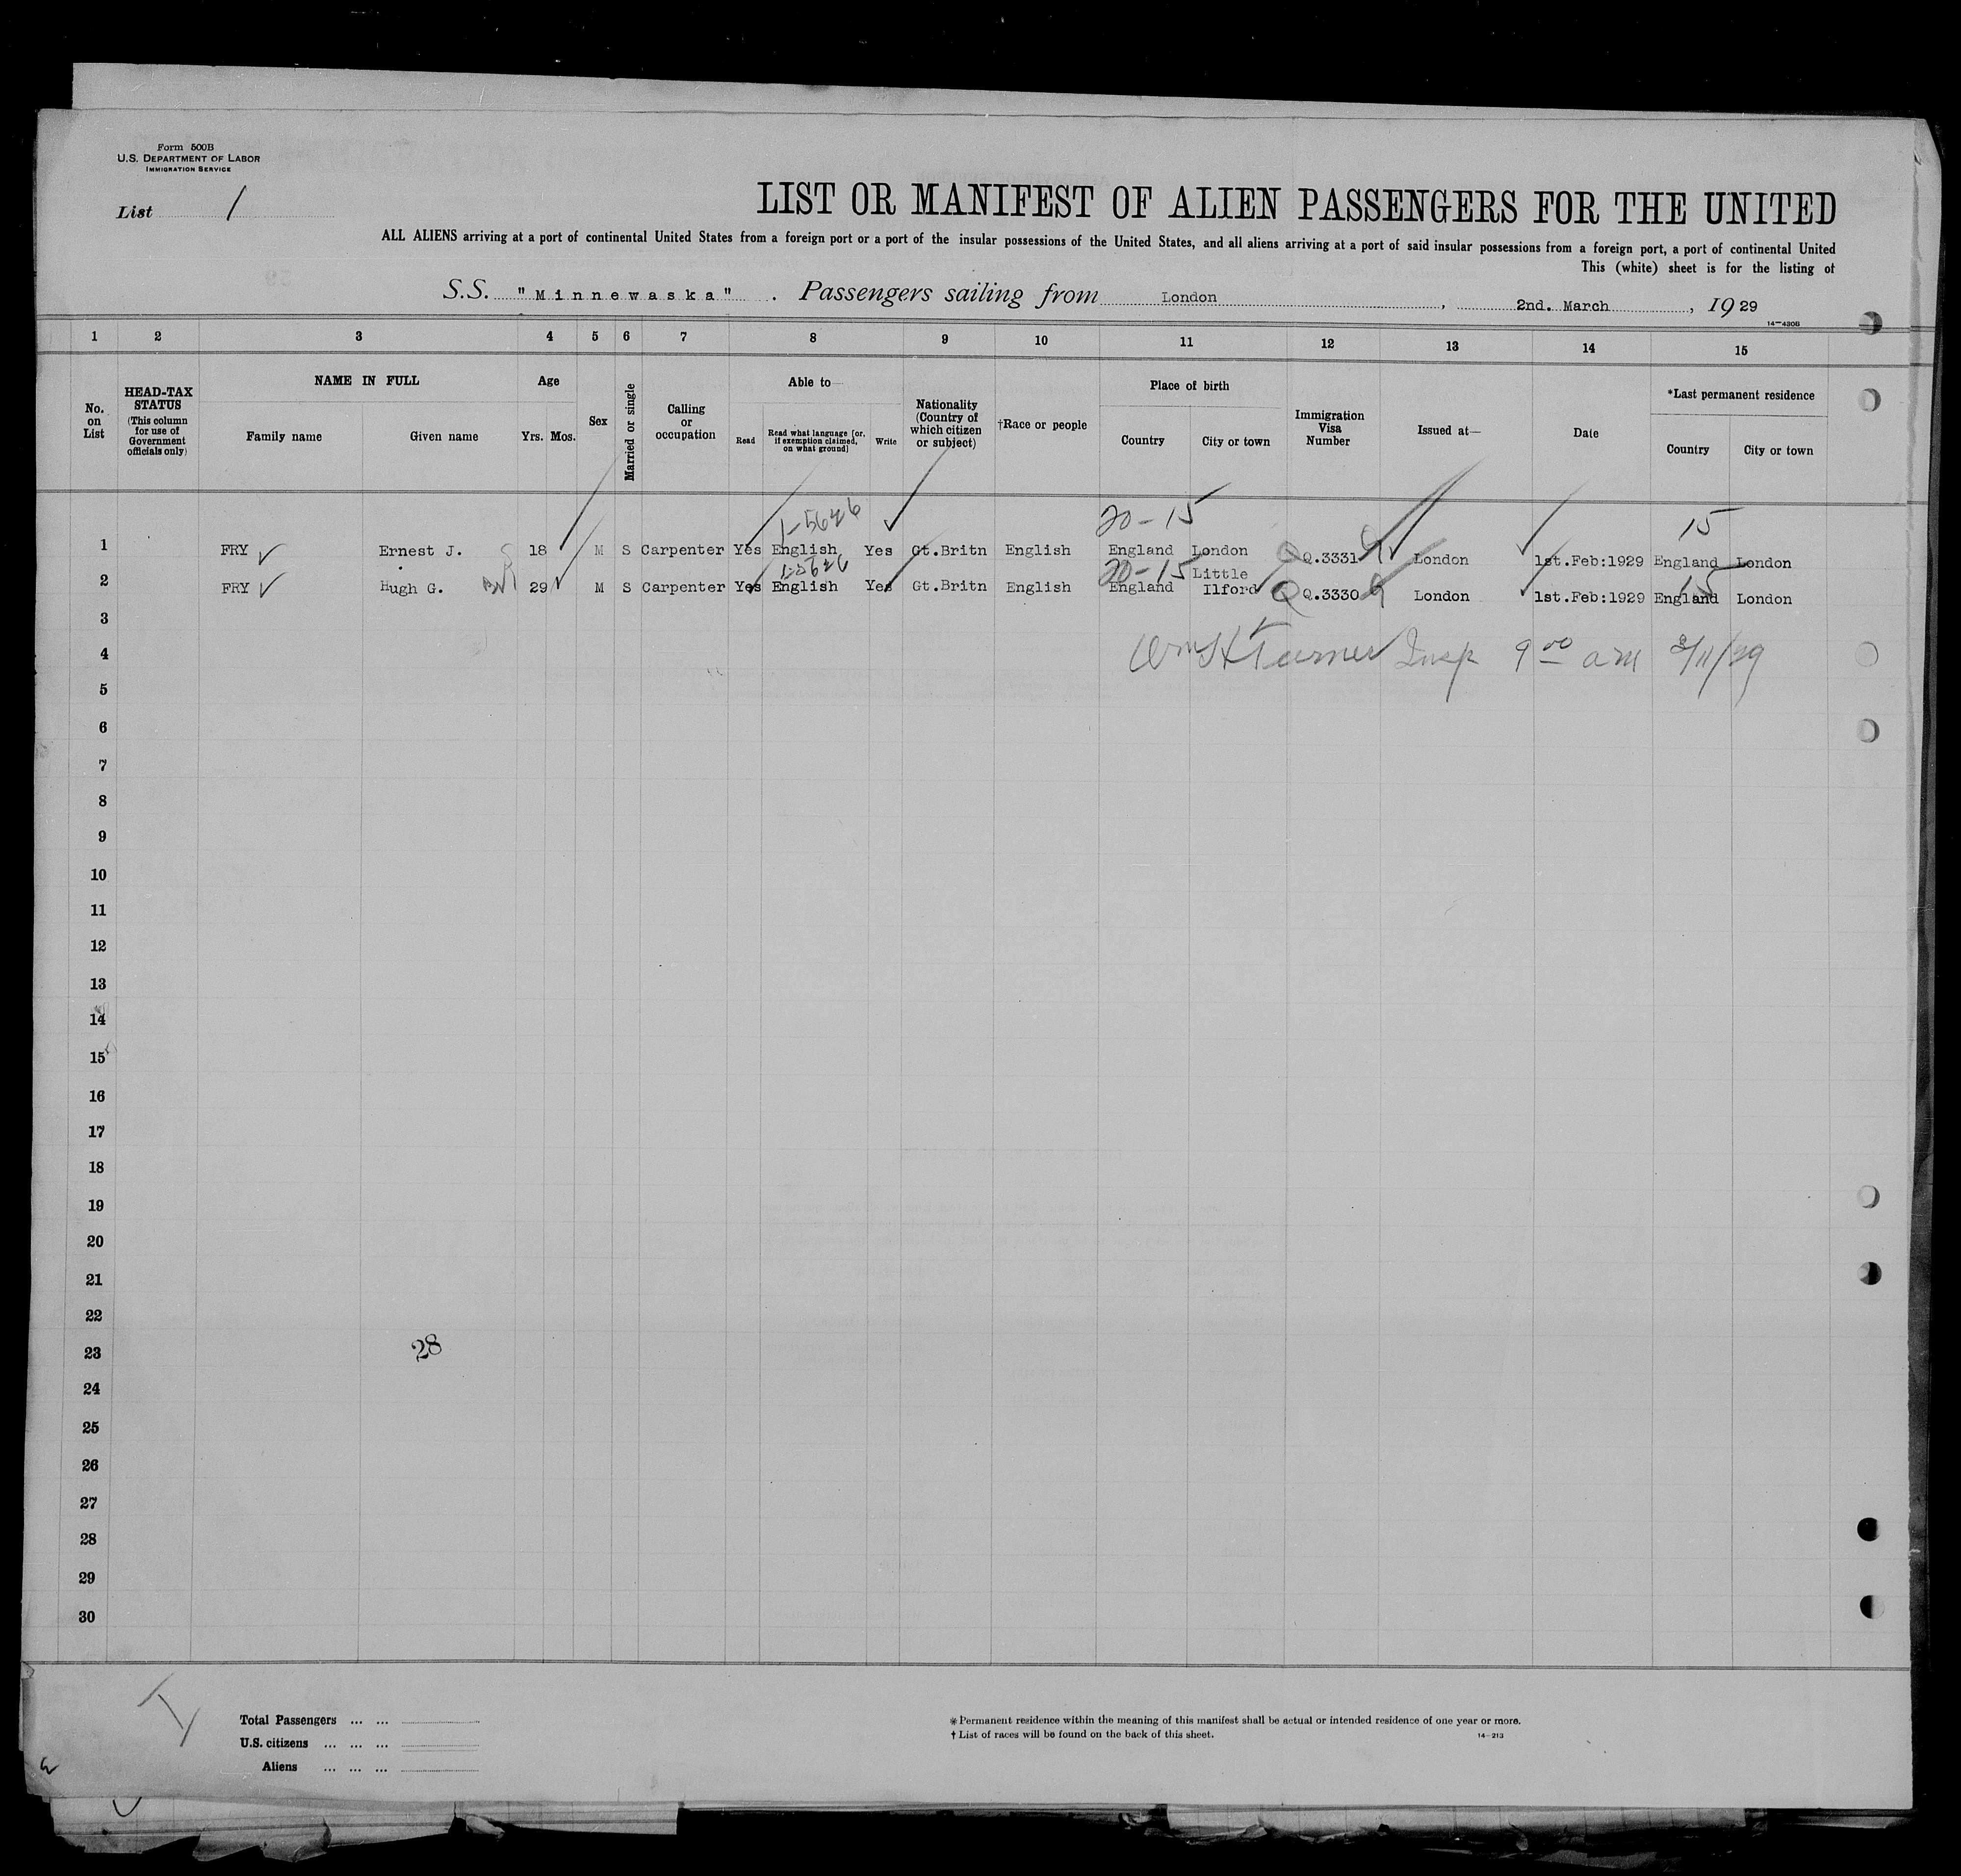 Form 500B
U.S. DEPARTMENT OF LABOR
IMMIGRATION SERVICE
List 1
LIST OR MANIFEST OF ALIEN PASSENGERS FOR THE UNITED
ALL ALIENS arriving at a port of continental United States from a foreign port or a port of the insular possessions of the United States, and all aliens arriving at a port of said insular possessions from a foreign port, a port of continental United
This (white) sheet is for the listing of
S.S. "Minnewaska". Passengers sailing from London, 2nd. March, 1929
14—430B
1 2 3 4 5 6 7 8 9 10 11 12 13 14 15
No. on List
HEAD-TAX STATUS
(This column for use of Government officials only)
NAME IN FULL
Family name
Given name
Age
Yrs. Mos.
Sex
Married or single
Calling or occupation
Able to—
Read
Read what language [or, if exemption claimed, on what ground]
Write
Nationality (Country of which citizen or subject)
†Race or people
Place of birth
Country
City or town
Immigration Visa Number
Issued at—
Date
*Last permanent residence
Country
City or town
1-5626 20-15 15
1 FRY Ernest J. 18 M S Carpenter Yes English Yes Gt.Britn English England London Q.3331 London 1st.Feb:1929 England London
1-5626 20-15 15
2 FRY Hugh G. 29 M S Carpenter Yes English Yes Gt.Britn English England Little Ilford Q.3330 London 1st.Feb:1929 England London
3
4 Wm H Turner Insp 9 00 am 3/11/29
5
6
7
8
9
10
11
12
13
14
15
16
17
18
19
20
21
22
23 28
24
25
26
27
28
29
30
Total Passengers ... ...
U.S. citizens ... ... ...
Aliens ... ... ...
*Permanent residence within the meaning of this manifest shall be actual or intended residence of one year or more.
†List of races will be found on the back of this sheet. 14—213